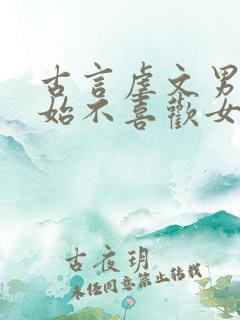 古言虐文男
始不喜歡女
古夜玥
未經同意禁止轉載